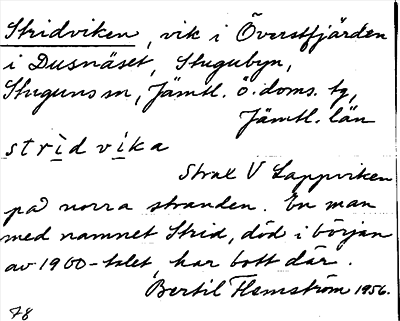 Stridviken, vik i Överstfjärden
i Dusnäset, Stugubyn,
Stuguns sn, Jämtl. ö. doms. tg,
Jämtl. län
strìd vika
Strax V Lappviken
på norra stranden. En man
med namnet Strid, död i början
av 1900-talet, har bott där.
Bertil Flemström 1956.
78